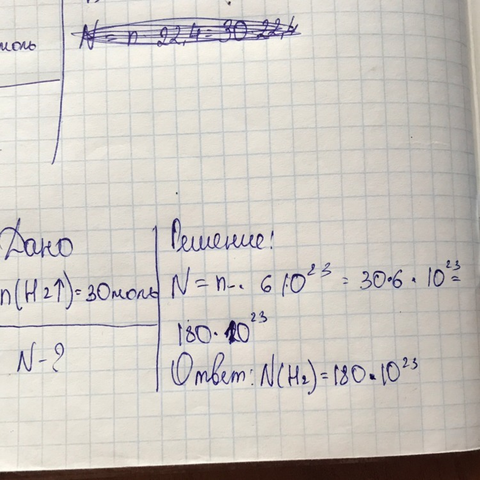 моль
N = n 22,4 = 30 22,4
Дано
n(H2↑)=30моль
N-?
Решение:
N = n · 6 10²³ = 30·6 · 10²³ =
180·10²³
Ответ: N(H2)=180·10²³